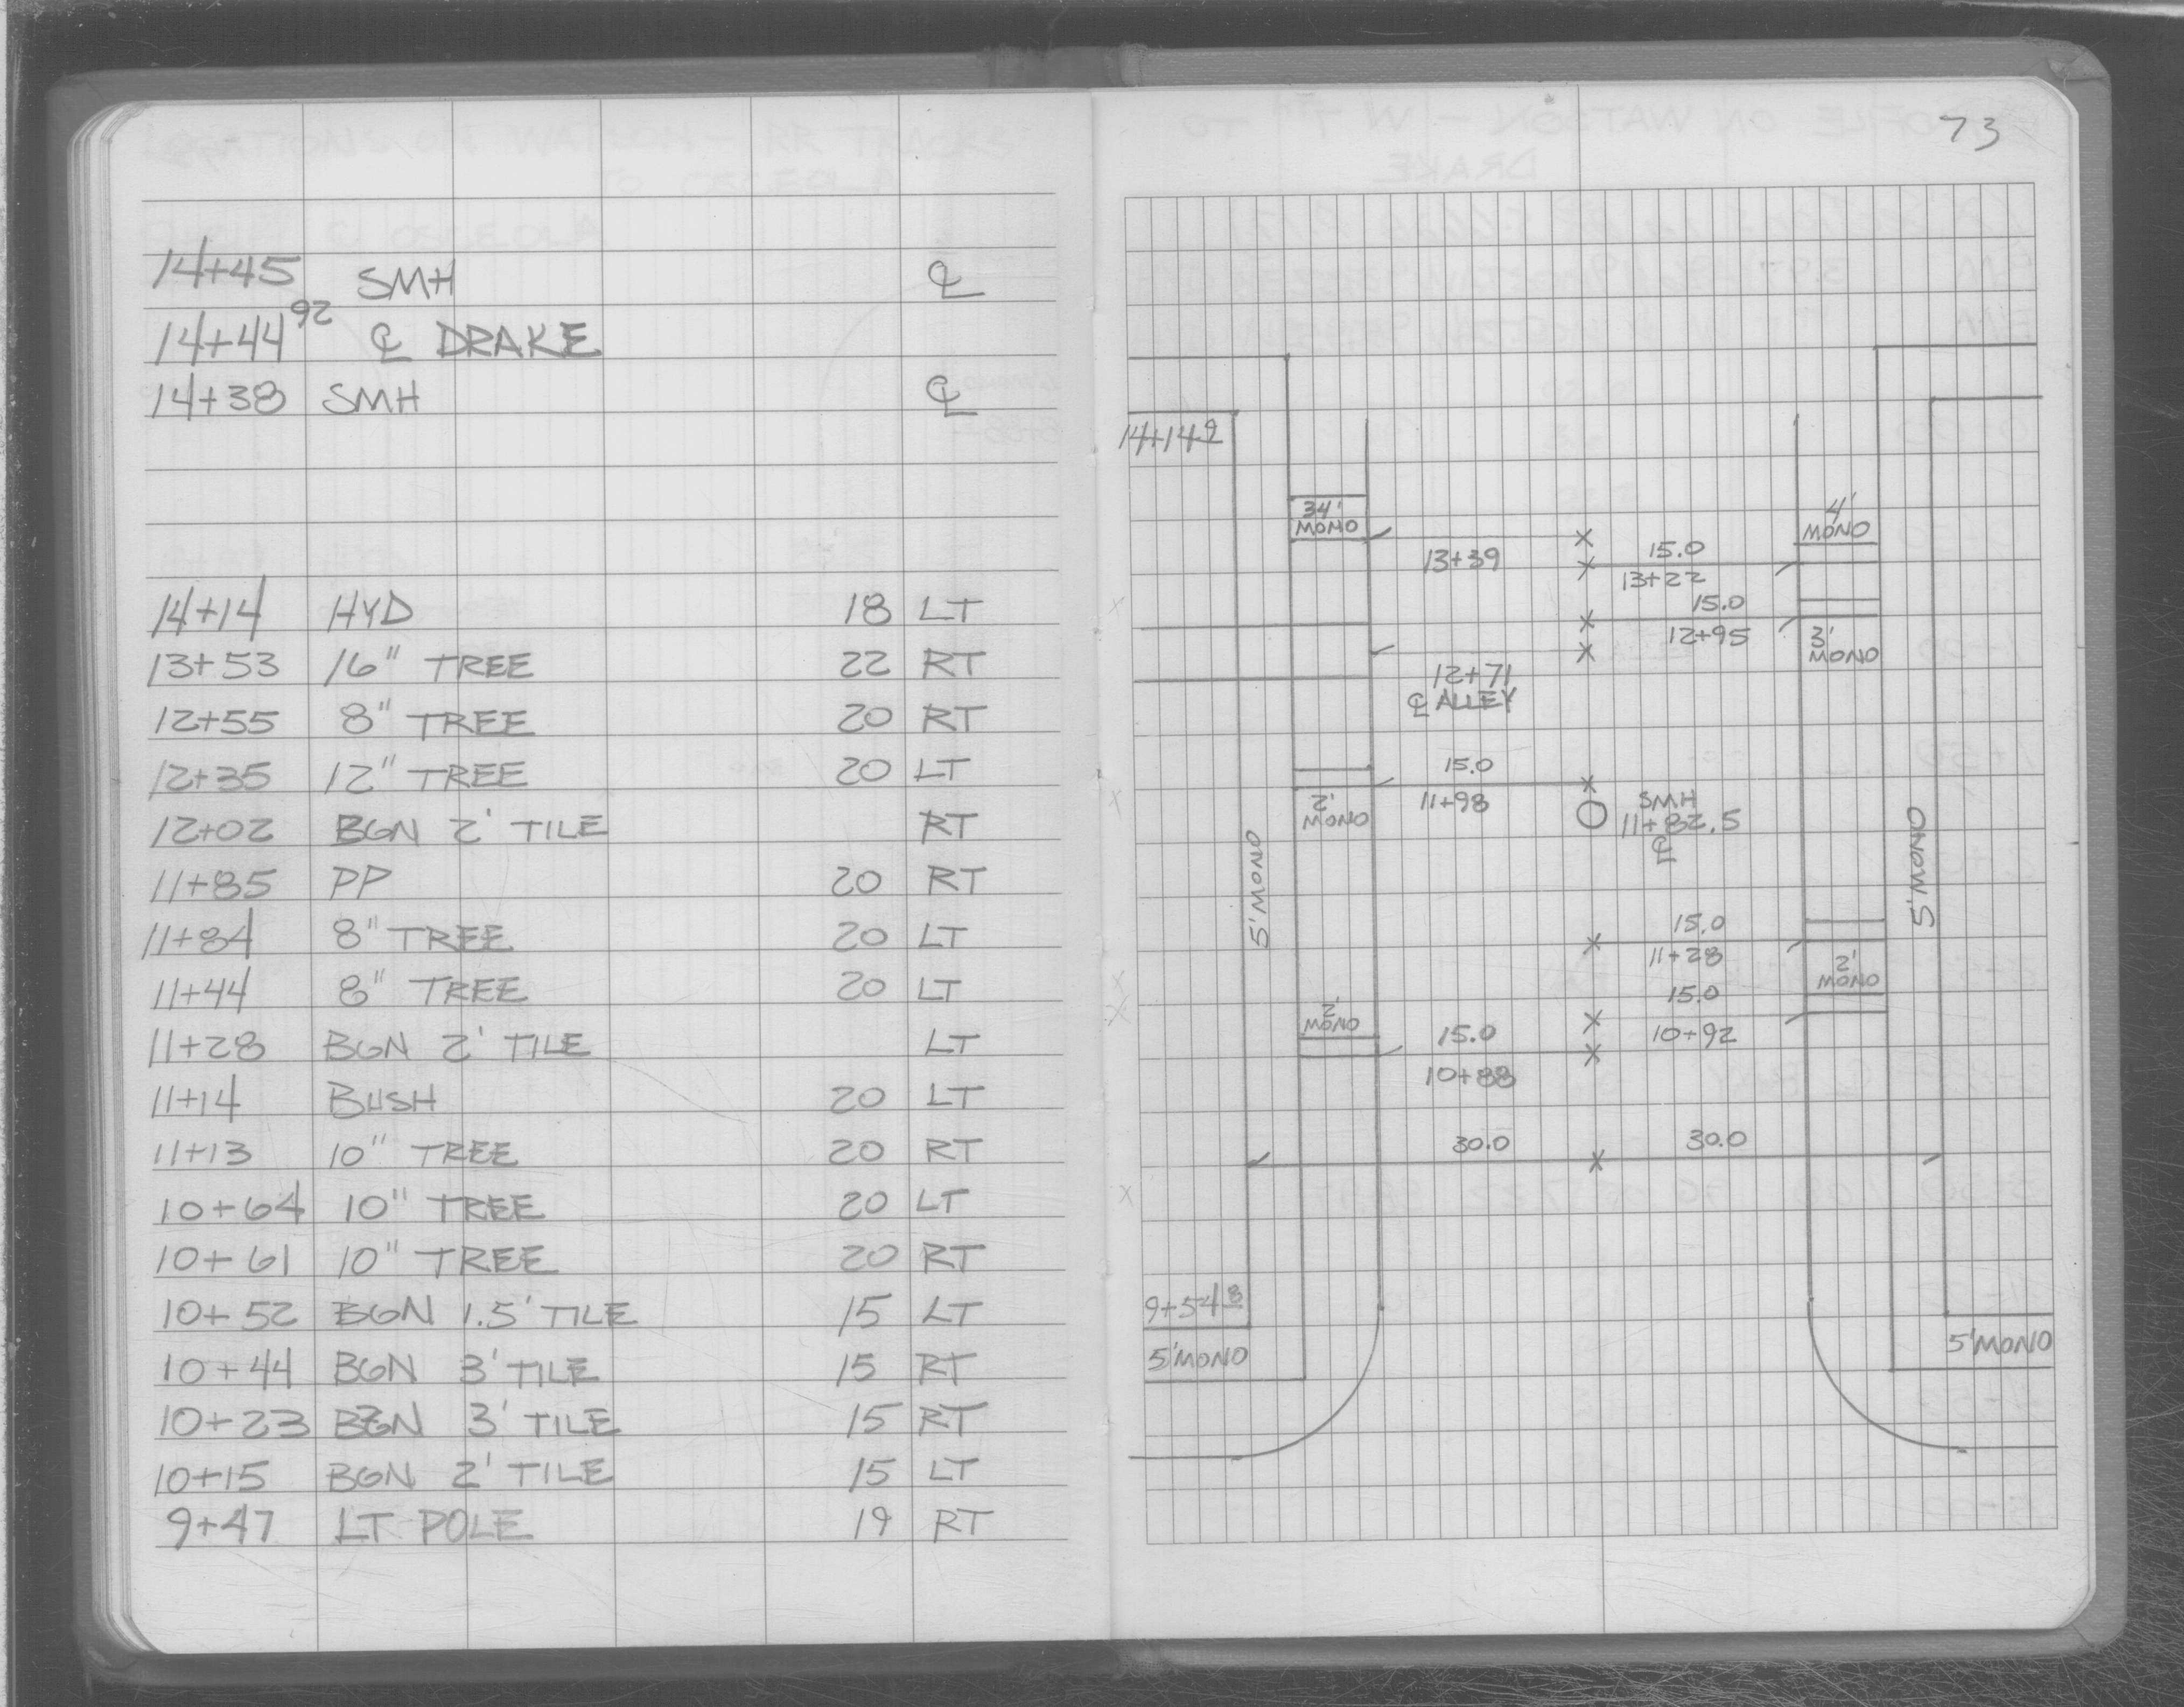 14+45 SMH ℄
14+44 92 ℄ DRAKE
14+38 SMH ℄
14+14 HYD 18 LT
13+53 16" TREE 22 RT
12+55 8" TREE 20 RT
12+35 12" TREE 20 LT
12+02 BGN 2' TILE RT
11+85 PP 20 RT
11+84 8" TREE 20 LT
11+44 8" TREE 20 LT
11+28 BGN 2' TILE LT
11+14 BUSH 20 LT
11+13 10" TREE 20 RT
10+64 10" TREE 20 LT
10+61 10" TREE 20 RT
10+52 BGN 1.5' TILE 15 LT
10+44 BGN 3' TILE 15 RT
10+23 BGN 3' TILE 15 RT
10+15 BGN 2' TILE 15 LT
9+47 LT POLE 19 RT
73
14+14 9
34'
MONO
4'
MONO
13+39
15.0
13+22
15.0
12+95
3'
MONO
12+71
℄ ALLEY
15.0
11+98
2'
MONO
SMH
11+82.5
℄
5' MONO
5' MONO
15.0
11+28
2'
MONO
15.0
10+92
2'
MONO
15.0
10+88
30.0
30.0
9+54 8
5' MONO
5' MONO